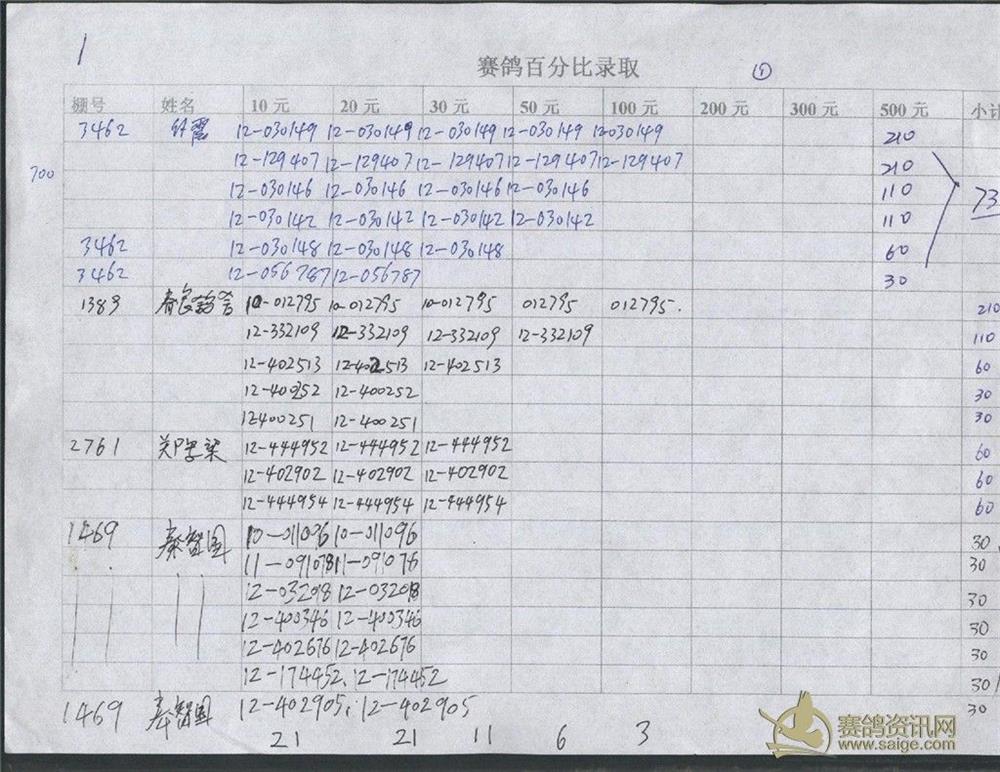 1
赛鸽百分比录取 ①
棚号 姓名 10元 20元 30元 50元 100元 200元 300元 500元 小计
3462 12-030149 12-030149 12-030149 12-030149 12-030149 210
700 12-129407 12-129407 12-129407 12-129407 12-129407 210
12-030146 12-030146 12-030146 12-030146 110 73
12-030142 12-030142 12-030142 12-030142 110
3462 12-030148 12-030148 12-030148 60
3462 12-056787 12-056787 30
1389 10-012795 10-012795 10-012795 012795 012795. 210
12-332109 12-332109 12-332109 12-332109 110
12-402513 12-402513 12-402513 60
12-400252 12-400252 30
12400251 12-400251 30
2761 12-444952 12-444952 12-444952 60
12-402902 12-402902 12-402902 60
12-444954 12-444954 12-444954 60
1469 秦智国 10-011096 10-011096 30
11-091078 11-091078 30
12-03208 12-03208 30
12-400346 12-400346 30
12-402676 12-402676 30
12-174452. 12-174452 30
1469 秦智国 12-402905. 12-402905 30
21 21 11 6 3
赛鸽资讯网
www.saige.com